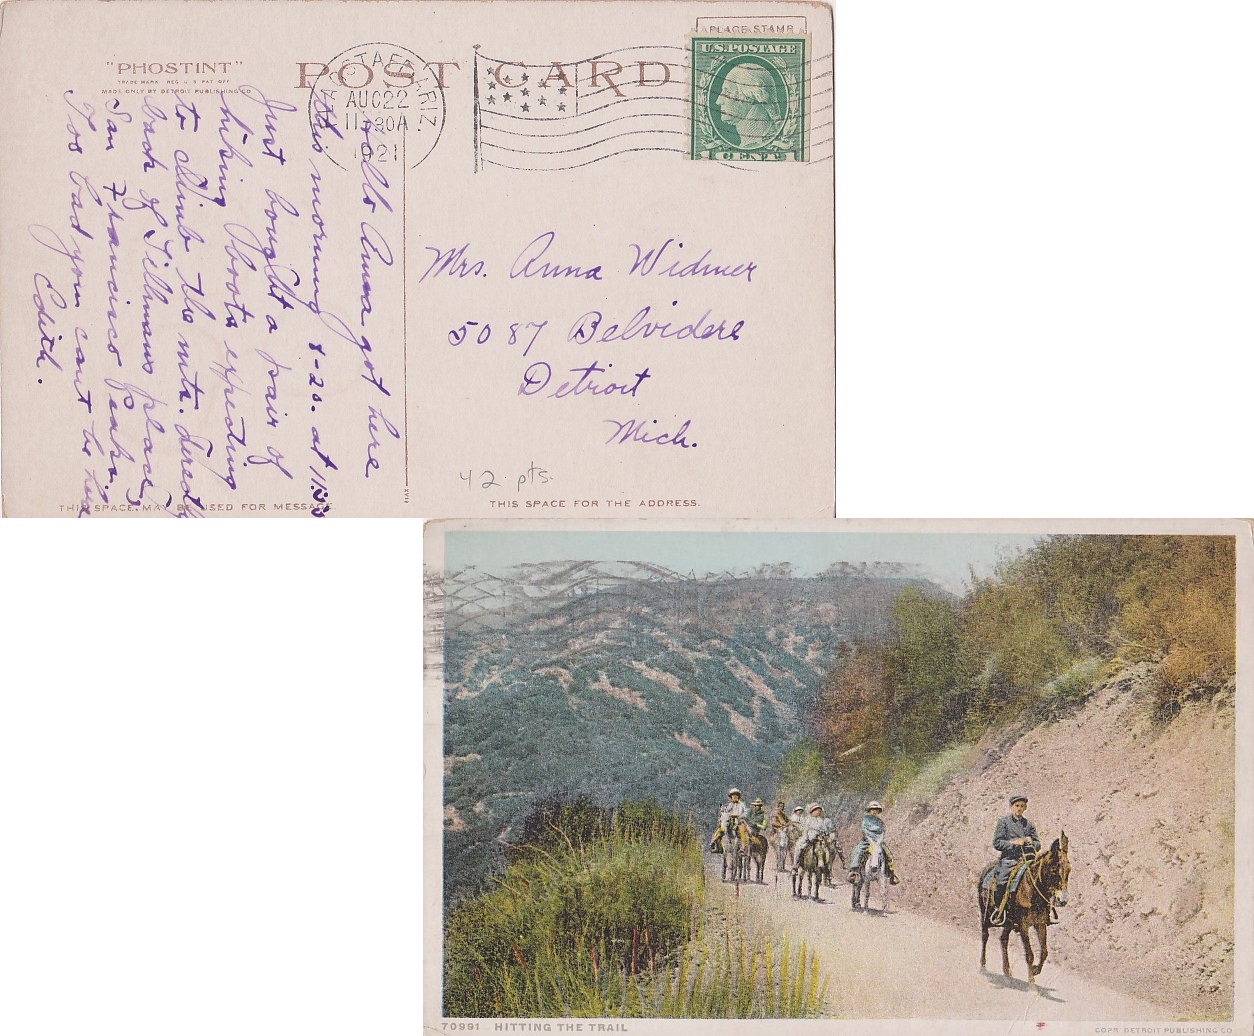 "PHOSTINT"
TRADE MARK REG. U.S. PAT. OFF.
MADE ONLY BY DETROIT PUBLISHING CO
POST CARD
PLACE STAMP
U.S. POSTAGE
1 CENT 1
FLAGSTAFF ARIZ.
AUG 22
11 30 A
1921
Hello Anna got here
this morning 8-20. at
Just bought a pair of
hiking boots expecting
to climb the mts. directly
back of Tillmans place,
San Francisco Peaks.
Too bad you cant be here
Edith.
Mrs. Anna Widmer
5087 Belvidere
Detroit
Mich.
42 pts.
THIS SPACE MAY BE USED FOR MESSAGE
THIS SPACE FOR THE ADDRESS.
70991 HITTING THE TRAIL
COPR. DETROIT PUBLISHING CO